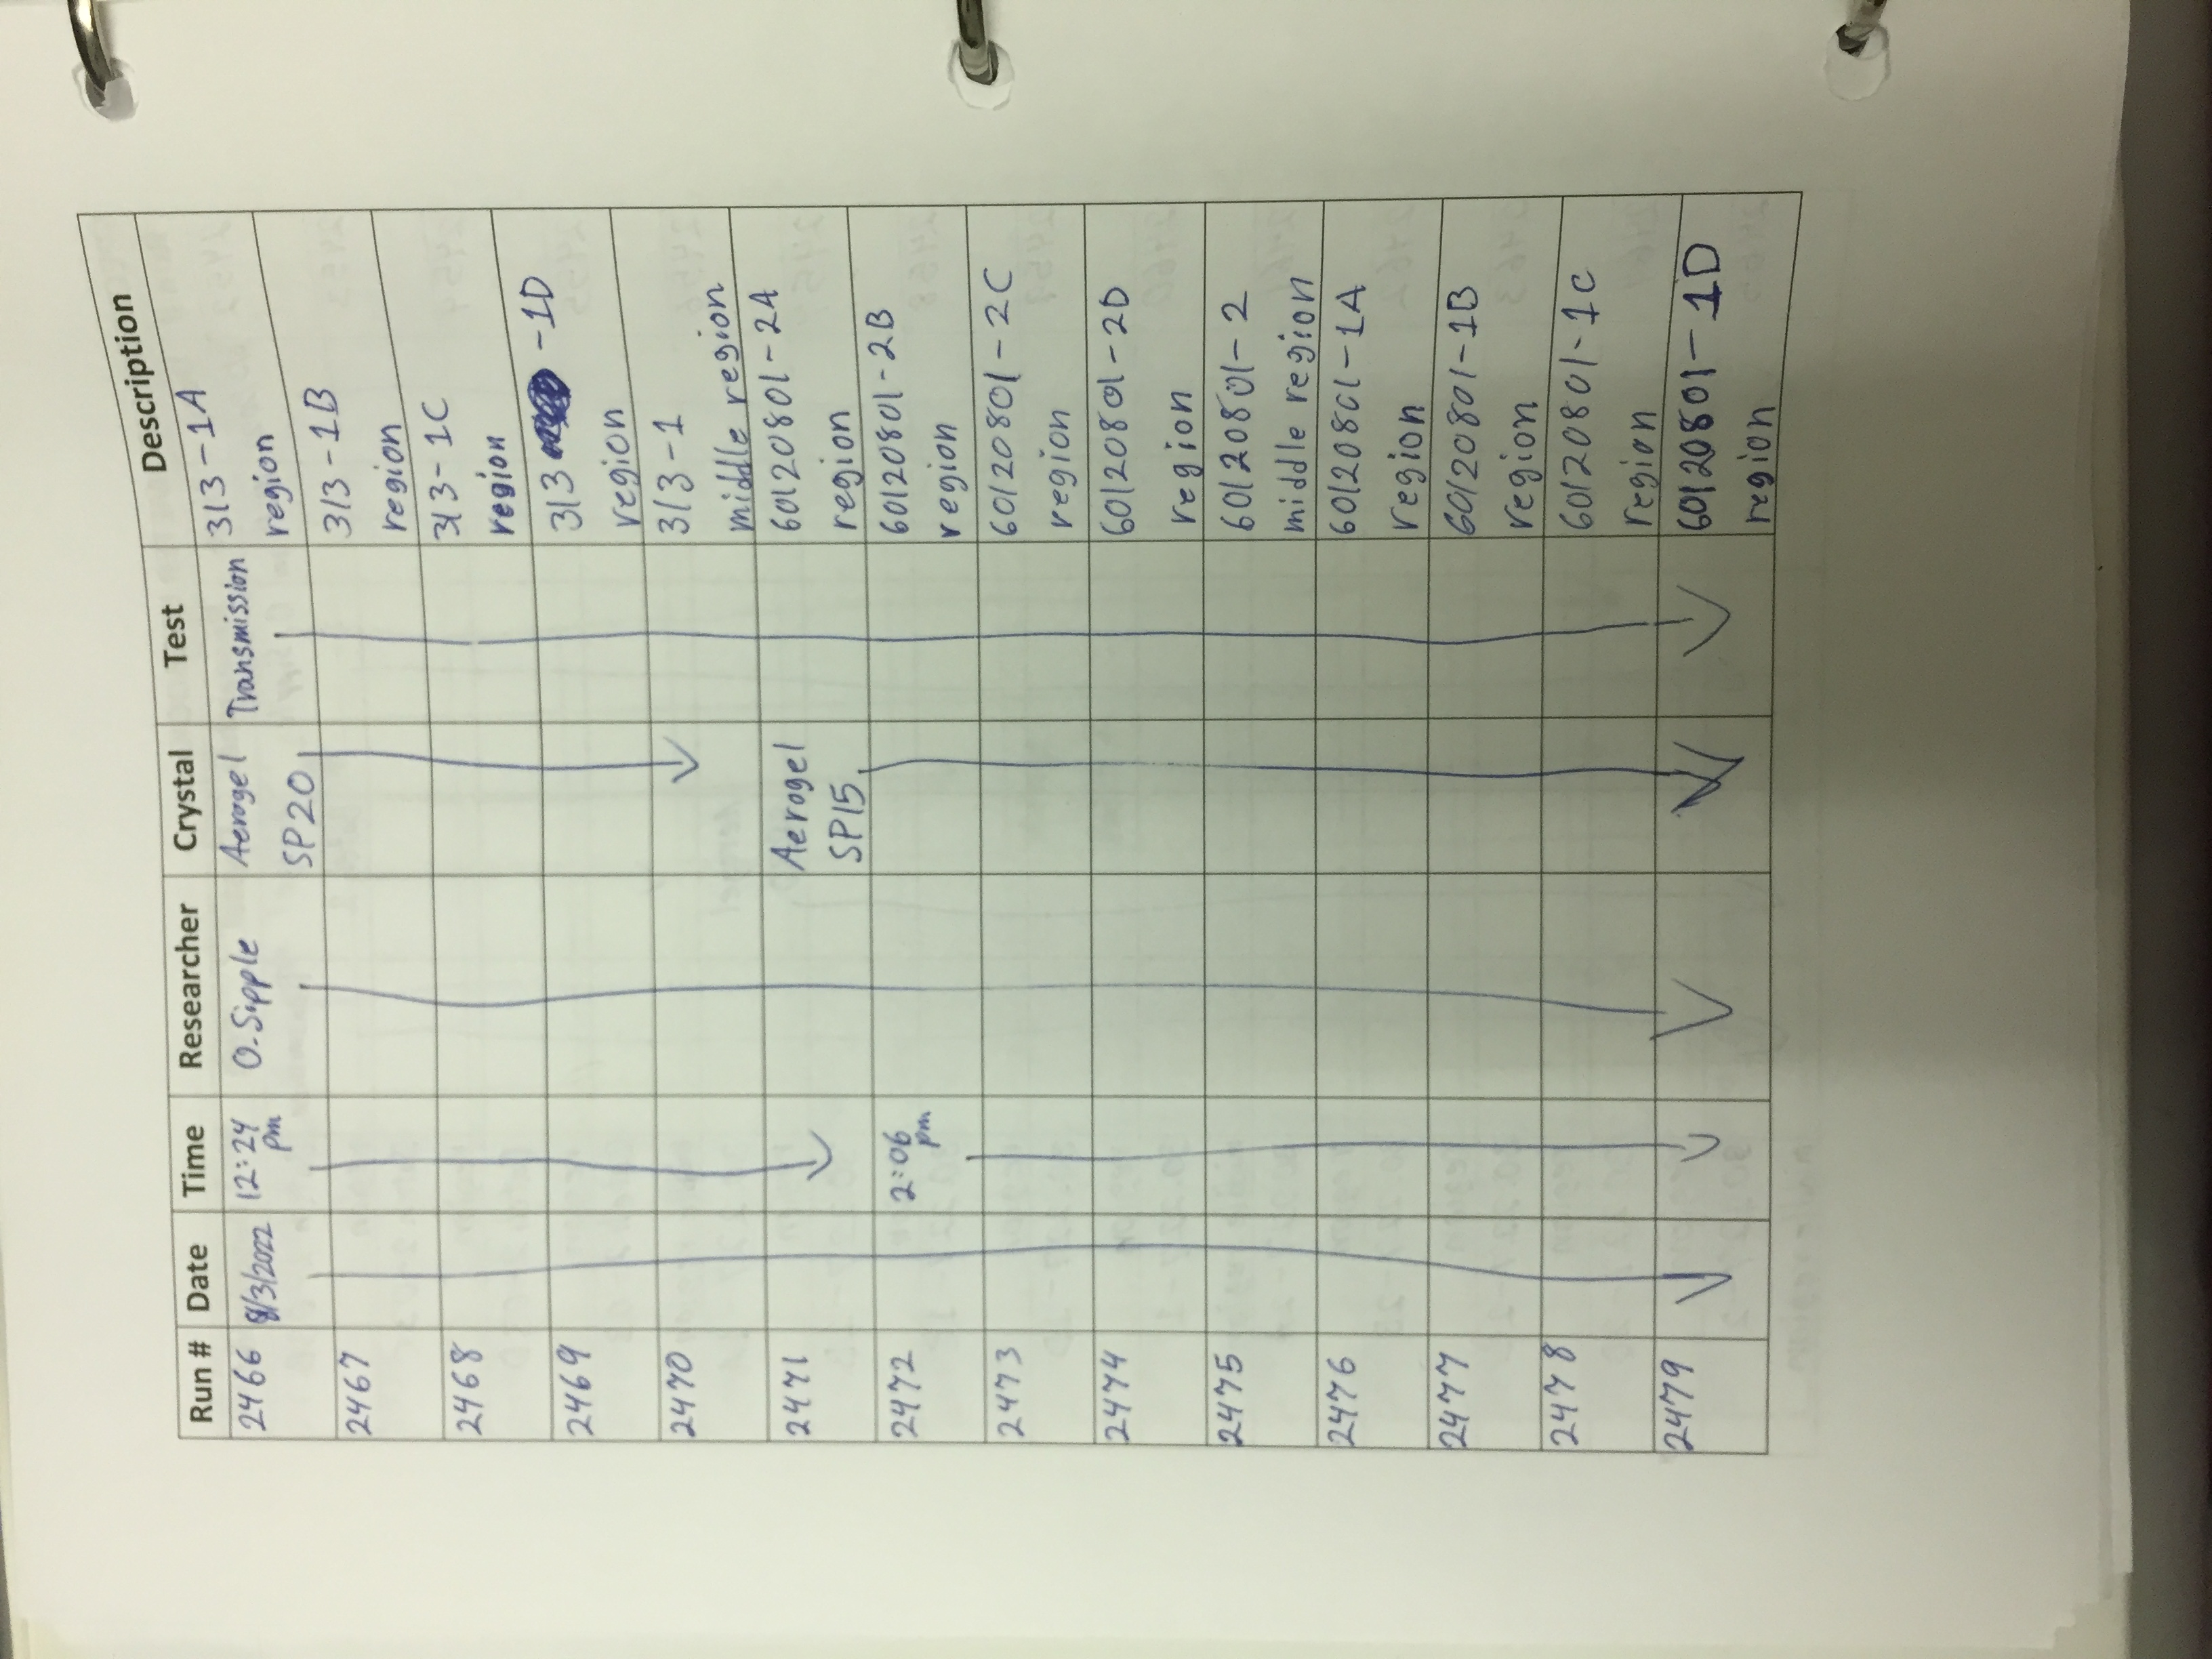 Run # Date Time Researcher Crystal Test Description
2466 8/3/2022 12:24 pm O. Sipple Aerogel SP20 Transmission 313-1A
region
2467 313-1B
region
2468 313-1C
region
2469 313 -1D
region
2470 313-1
middle region
2471 Aerogel SP15 60120801-2A
region
2472 2:06 pm 60120801-2B
region
2473 60120801-2C
region
2474 60120801-2D
region
2475 60120801-2
middle region
2476 60120801-1A
region
2477 60120801-1B
region
2478 60120801-1C
region
2479 60120801-1D
region